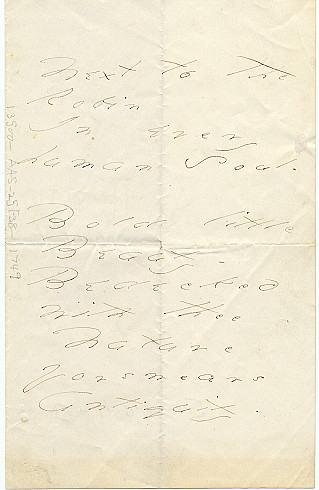 Next to the
Robin
In every
human Soul.
Bold little
Beauty.
Bedecked
with thee
Nature
forswears
Antiquity.
749